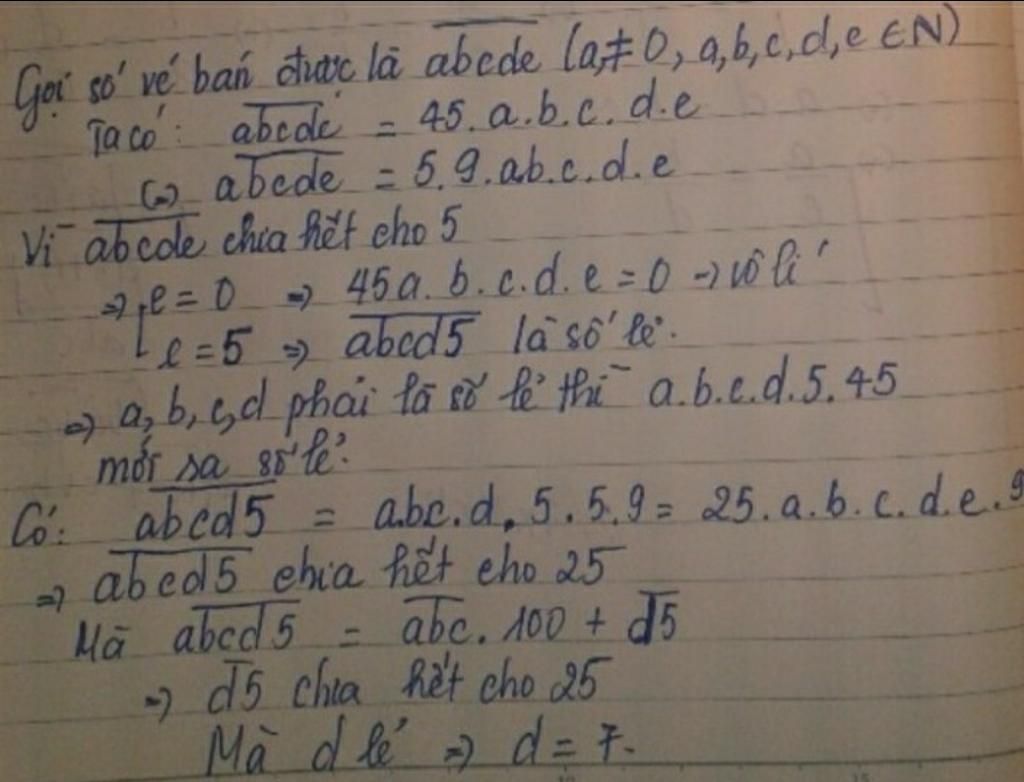 Gọi số vé bán được là abcde (a,≠0, a,b,c,d,e ∈N)
Ta có: abcde = 45. a.b.c.d.e
(=) abcde = 5.9.a.b.c.d.e
Vì abcde chia hết cho 5
=> [e = 0 => 45a.b.c.d.e = 0 → vô lí
e = 5 => abcd5 là số lẻ.
=> a, b, c, d phải là số lẻ thì a.b.c.d.5.45
mới sa số lẻ.
Có: abcd5 = a.b.c.d.5.5.9 = 25.a.b.c.d.e.9
=> abcd5 chia hết cho 25
Mà abcd5 = abc.100 + d5
=> d5 chia hết cho 25
Mà d lẻ => d = 7.